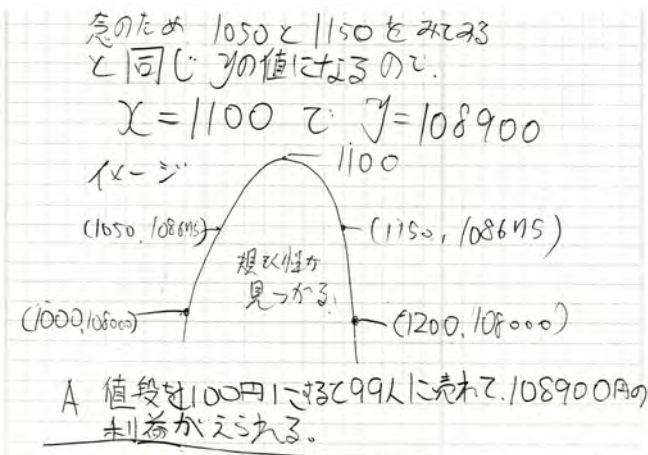 念のため 1050と1150をみてみる
と同じyの値になるので、
x=1100で y=108900
イメージ
1100
(1050, 108675)
(1150, 108675)
規そく性が
見つかる。
(1000, 108000)
(1200, 108000)
A 値段を1100円にすると99人に売れて、108900円の
利益がえられる。